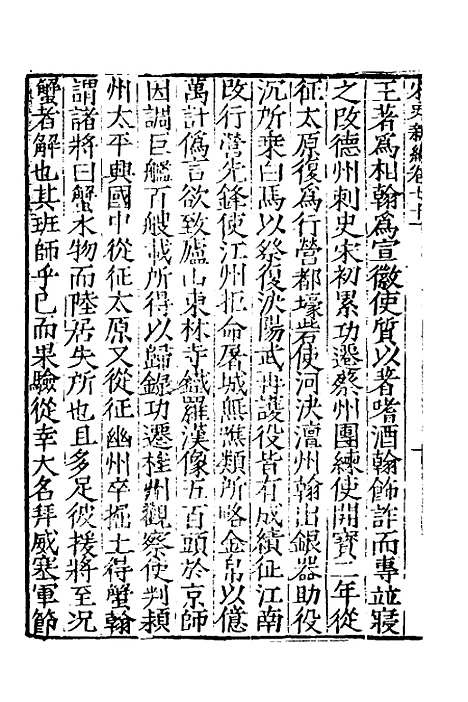 宋史新編卷七十一
王著為相翰為宣徽使質以著嗜酒翰飾詐而專並寢
之改德州刺史宋初累功遷蔡州團練使開寶二年從
征太原復為行營都壕砦使河決澶州翰出銀器助役
沉所乘白馬以祭復決陽武再護役皆有成績征江南
改行營先鋒使江州拒命屠城無噍類所略金帛以億
萬計偽言欲致廬山東林寺鐵羅漢像五百頭於京師
因調巨艦百艘載所得以歸錄功遷桂州觀察使判潁
州太平興國中從征太原又從征幽州卒掘土得蟹翰
謂諸將曰蟹水物而陸居失所也且多足彼援將至況
蟹者解也其班師乎已而果驗從幸大名拜威塞軍節